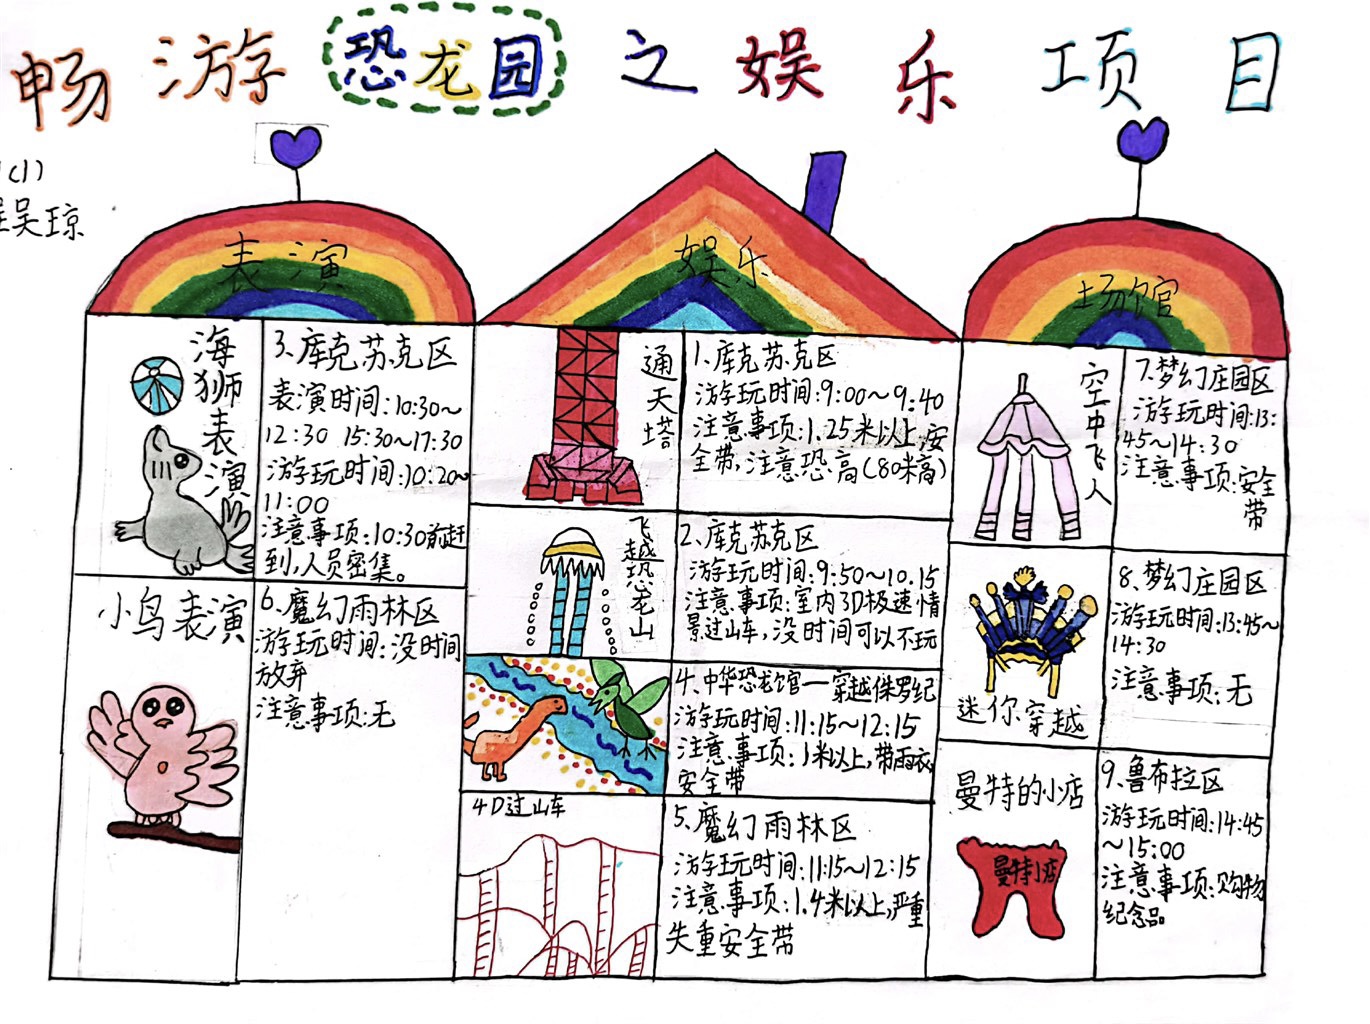 畅游恐龙园之娱乐项目
(1)
吴琼
表演
海狮表演
3、库克苏克区
表演时间:10:30~
12:30 15:30~17:30
游玩时间:10:20~
11:00
注意事项:10:30前赶
到,人员密集。
小鸟表演
6、魔幻雨林区
游玩时间:没时间
放弃
注意事项:无
娱乐
通天塔
1、库克苏克区
游玩时间:9:00~9:40
注意事项:1.25米以上,安
全带,注意恐高(80米高)
飞越恐龙山
2、库克苏克区
游玩时间:9:50~10.15
注意事项:室内3D极速情
景过山车,没时间可以不玩
4、中华恐龙馆—穿越侏罗纪
游玩时间:11:15~12:15
注意事项:1米以上,带雨衣
安全带
4D过山车
5、魔幻雨林区
游玩时间:11:15~12:15
注意事项:1.4米以上,严重
失重安全带
场馆
空中飞人
7、梦幻庄园区
游玩时间:13:
45~14:30
注意事项:安全
带
迷你穿越
8、梦幻庄园区
游玩时间:13:45~
14:30
注意事项:无
曼特的小店
曼特小店
9、鲁布拉区
游玩时间:14:45
~15:00
注意事项:购物
纪念品